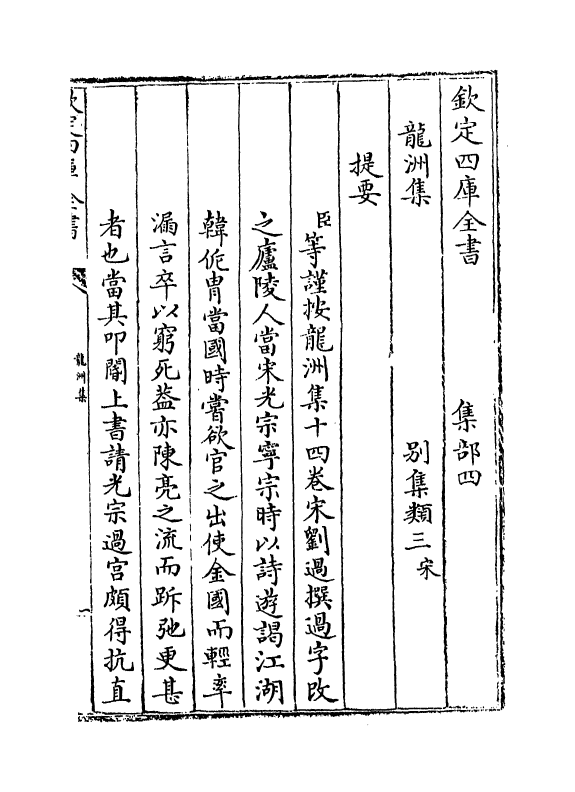 欽定四庫全書　集部四
龍洲集　別集類三宋
提要
臣等謹按龍洲集十四卷宋劉過撰過字改
之廬陵人當宋光宗寧宗時以詩遊謁江湖
韓侂冑當國時嘗欲官之出使金國而輕率
漏言卒以窮死葢亦陳亮之流而跅弛更甚
者也當其叩閽上書請光宗過宮頗得抗直
欽定四庫全書
龍洲集
一